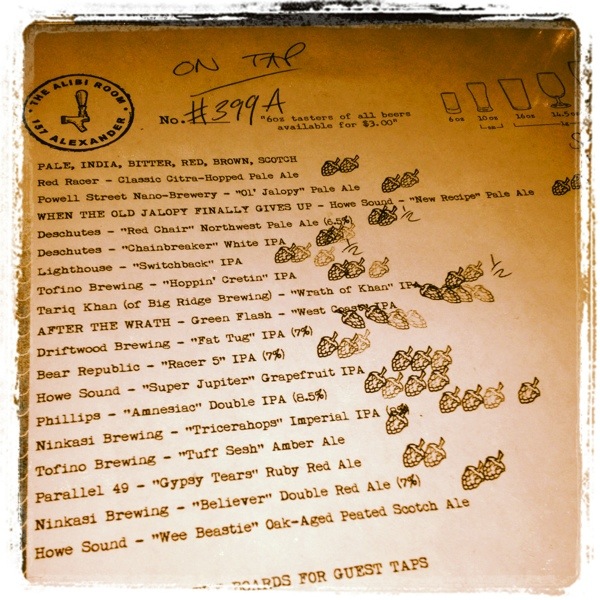 THE ALIBI ROOM
157 ALEXANDER
ON TAP
No. #399A
"6oz tasters of all beers
available for $3.00"
6oz 10oz 16oz 14.5oz
PALE, INDIA, BITTER, RED, BROWN, SCOTCH
Red Racer - Classic Citra-Hopped Pale Ale
Powell Street Nano-Brewery - "Ol' Jalopy" Pale Ale
WHEN THE OLD JALOPY FINALLY GIVES UP - Howe Sound - "New Recipe" Pale Ale
Deschutes - "Red Chair" Northwest Pale Ale (6.5%) 1/2
Deschutes - "Chainbreaker" White IPA
Lighthouse - "Switchback" IPA 1/2
Tofino Brewing - "Hoppin' Cretin" IPA
Tariq Khan (of Big Ridge Brewing) - "Wrath of Khan" IPA 1/2
AFTER THE WRATH - Green Flash - "West Coast" IPA
Driftwood Brewing - "Fat Tug" IPA (7%)
Bear Republic - "Racer 5" IPA (7%)
Howe Sound - "Super Jupiter" Grapefruit IPA
Phillips - "Amnesiac" Double IPA (8.5%)
Ninkasi Brewing - "Tricerahops" Imperial IPA
Tofino Brewing - "Tuff Sesh" Amber Ale
Parallel 49 - "Gypsy Tears" Ruby Red Ale
Ninkasi Brewing - "Believer" Double Red Ale (7%)
Howe Sound - "Wee Beastie" Oak-Aged Peated Scotch Ale
BOARDS FOR GUEST TAPS